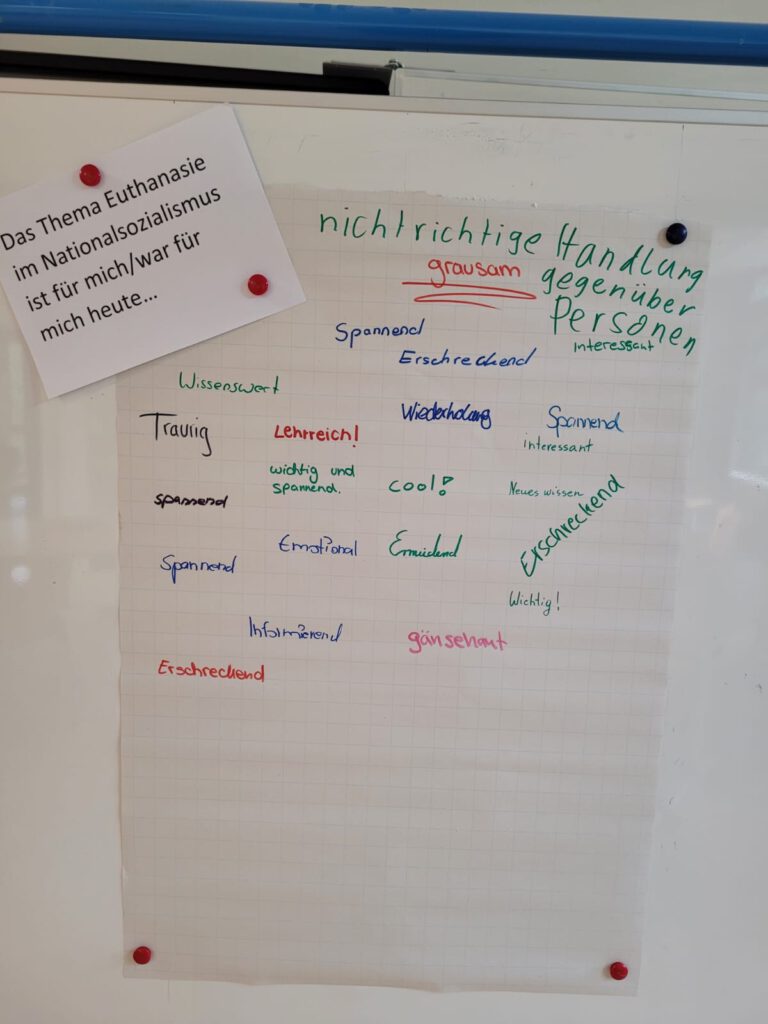 Das Thema Euthanasie
im Nationalsozialismus
ist für mich/war für
mich heute...
nicht richtige Handlung
gegenüber
Personen
grausam
interessant
Spannend
Erschreckend
Wissenswert
Wiederholung
Spannend
Traurig
Lehrreich!
interessant
wichtig und
spannend.
cool!
Neues wissen
spannend
Erschreckend
Emotional
Ermüdend
Spannend
Wichtig!
Informierend
gänsehaut
Erschreckend